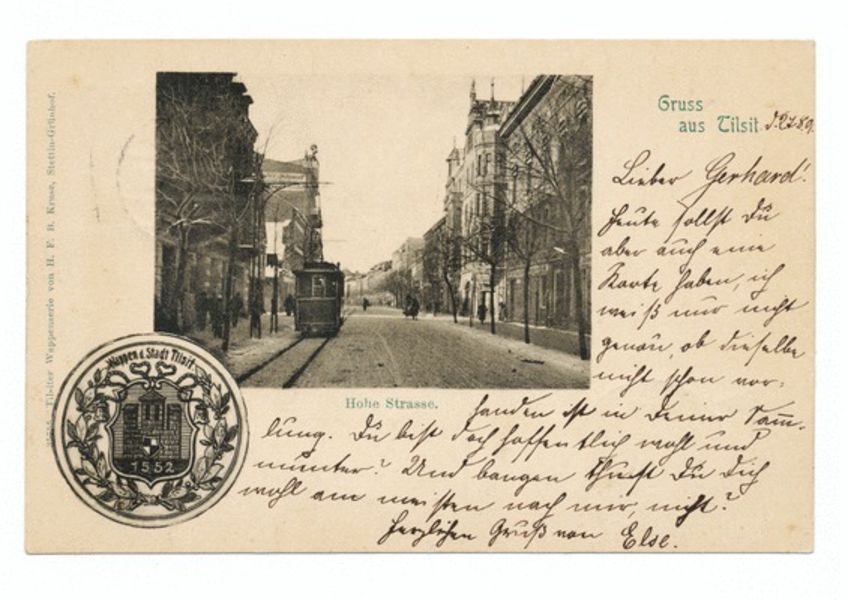 Gruss
aus Tilsit.
Lieber Gerhard!
Heute sollst Du
aber auch eine
Karte haben, ich
weiß nur nicht
genau, ob dieselbe
nicht schon vor-
handen ist in Deiner Samm-
lung. Du bist doch hoffentlich wohl und
munter? Und bangen thust Du Dich
wohl am meisten nach mir, nicht?
Herzlichen Gruß von Else.
Hohe Strasse.
Wappen d. Stadt Tilsit
1552
Tilsiter Wappenserie von H. F. B. Kruse, Stettin-Grünhof.